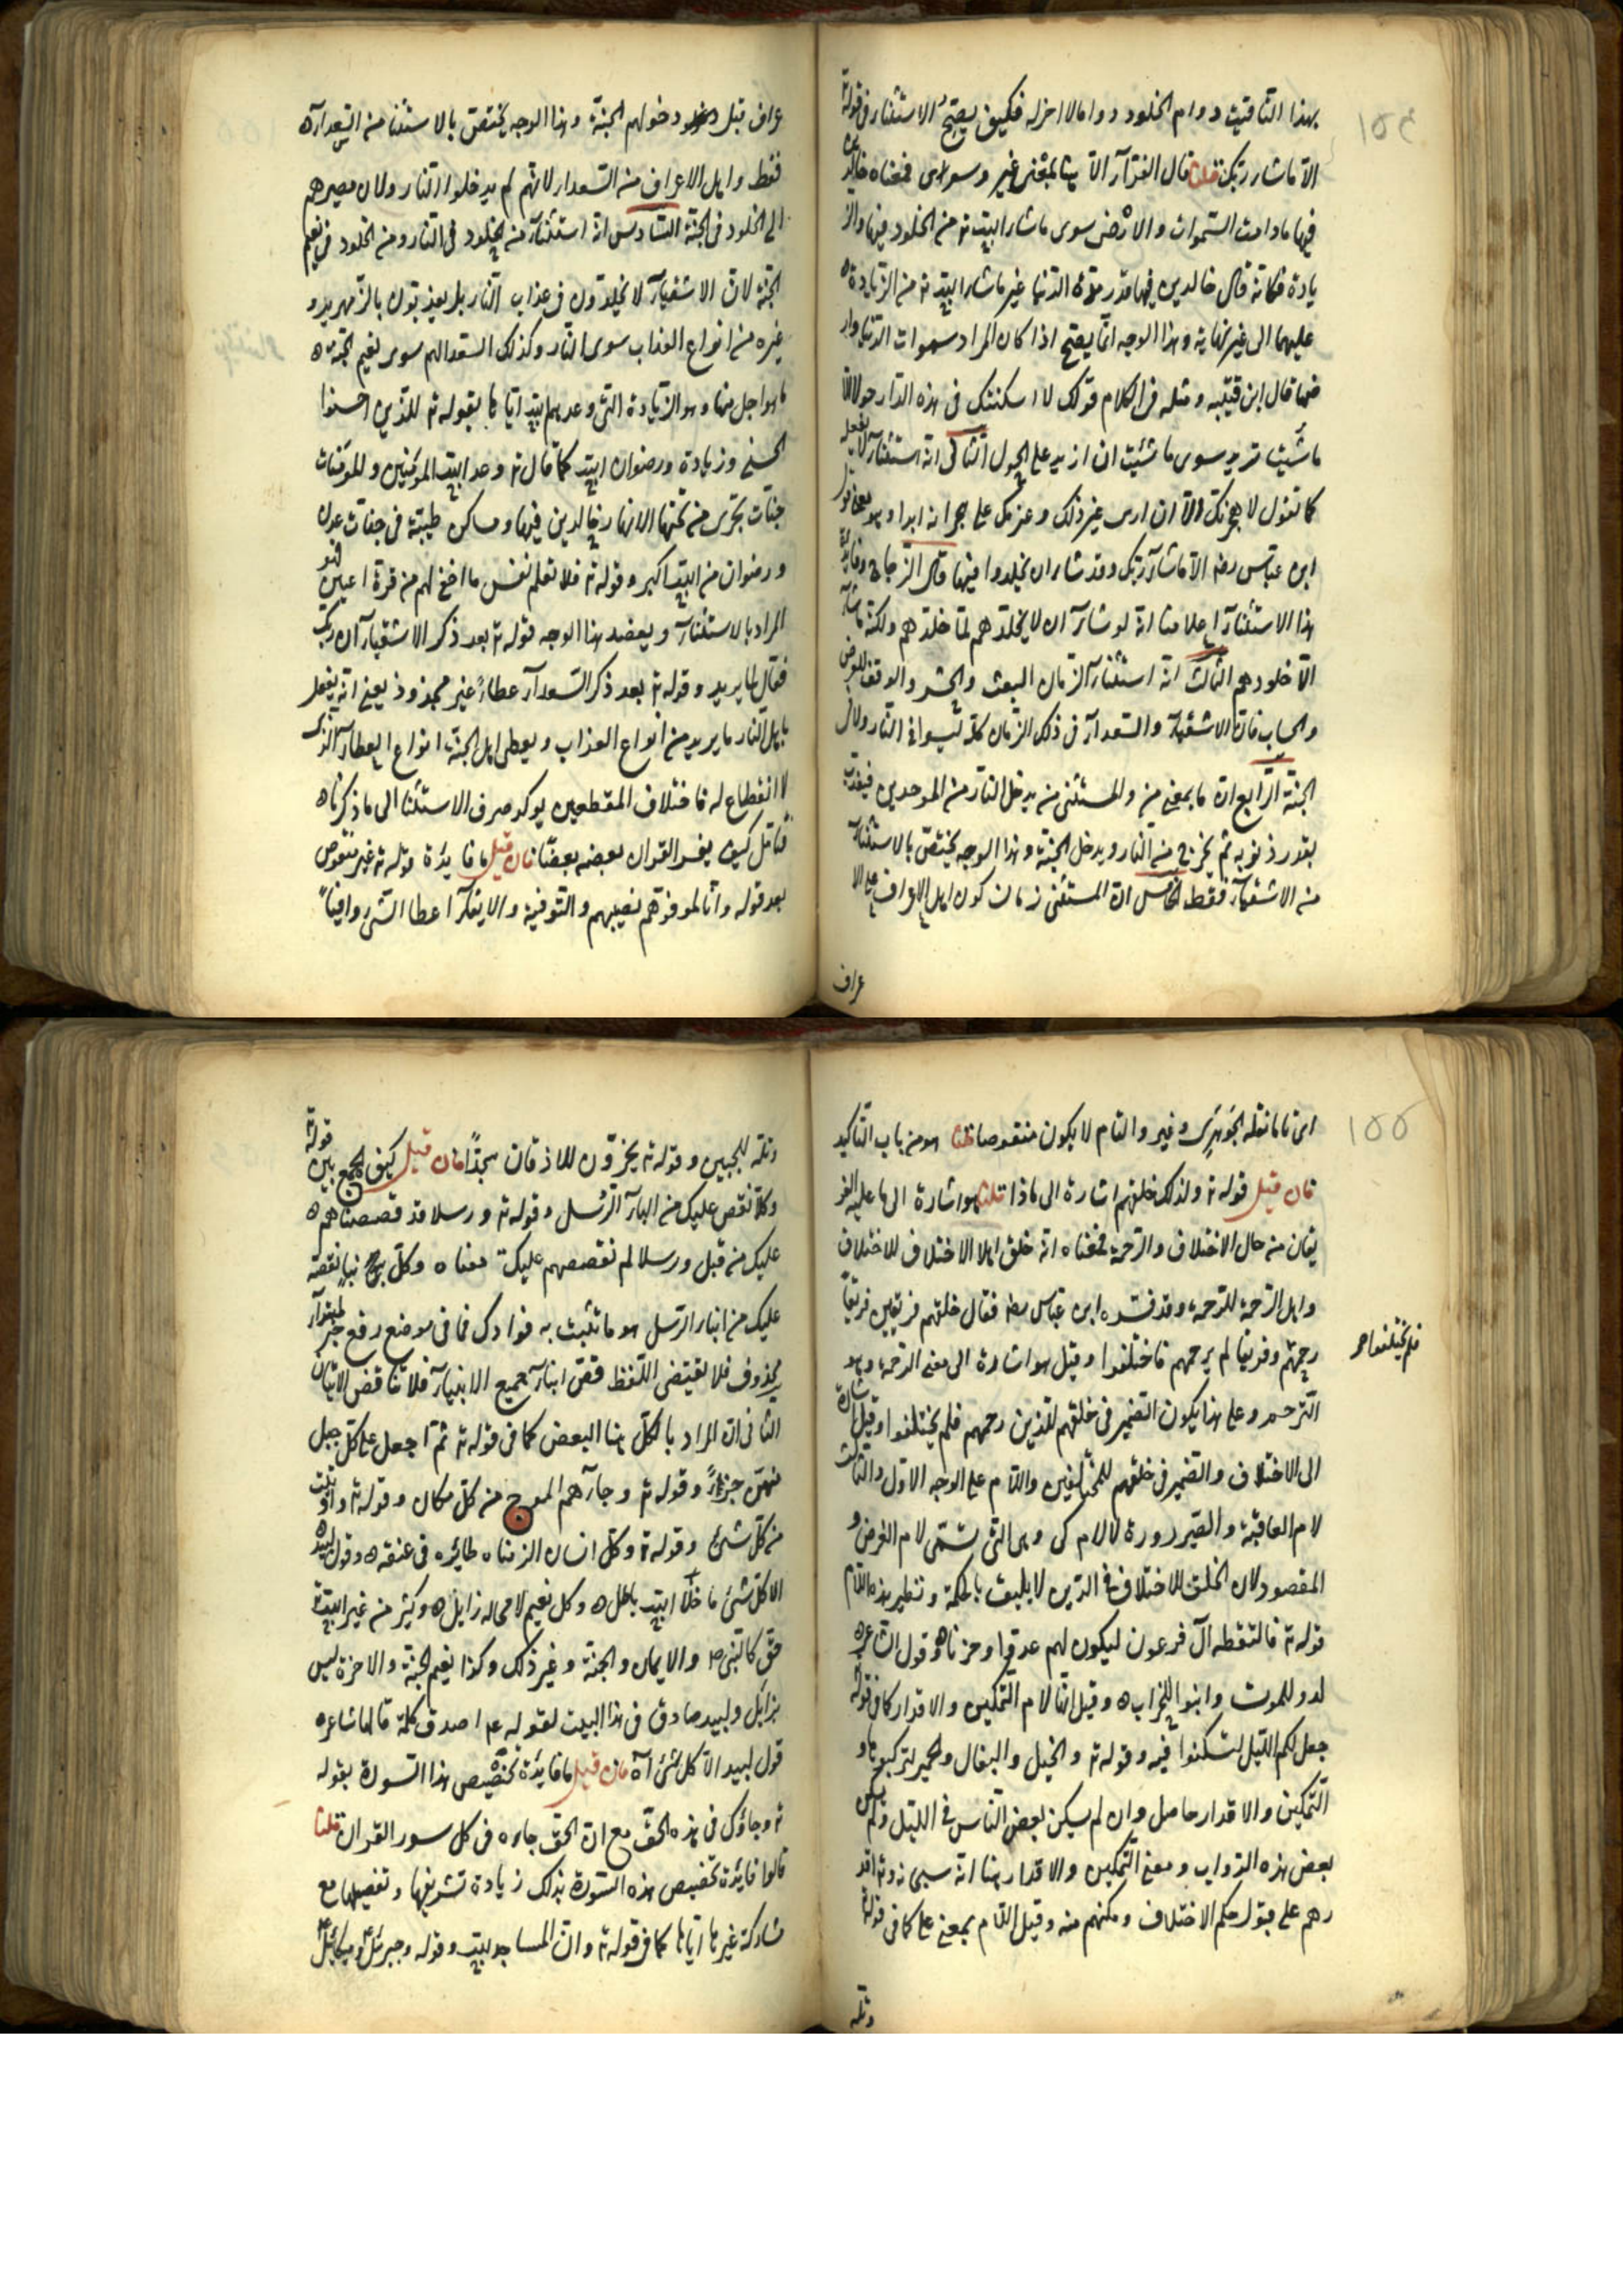 ١٥٤
بهذا التاقيت دوام الخلود دواما لا اخر له فكيف يصح الاستثناء فى قوله تع
الا ما شاء ربك قلنا قال الفراء الا هنا بمعنى غير وسوى فمعناه خالدين
فيها مادامت السموات والارض سوى ما شاء الله تع من الخلود فيها والز
يادة فكانه قال خالدين فيها قدر مدة الدنيا غير ما شاء الله تع من الزيادة
عليهما الى غير نهاية وهذا الوجه انما يصح اذا كان المراد سموات الدنيا وار
ضها قال ابن قتيبه ومثله فى الكلام قولك لا اسكننك فى هذه الدار حولا الا
ما شئت تريد سوى ما شئت ان ازيد على الحول الثانى انه استثناء لا يفعله
كما تقول لا هجرنك الا ان ارى غير ذلك وعزمك على هجرانه ابدا وهو معنى قول
ابن عباس رضه الا ما شاء ربك وقد شاء ان يخلدوا فيها قال الزجاج وفائدة
هذا الاستثناء اعلامنا انه لو شاء ان لا يخلدهم لما خلدهم ولكنه ما شاء
الا خلودهم الثالث انه استثناء الزمان البعث والحشر والوقف للعرض
والحساب فان الاشقياء والسعداء فى ذلك الزمان كله ليسوا فى النار ولا فى
الجنة الرابع ان ما بمعنى من والمستثنى من يدخل النار من الموحدين فيعذب
بقدر ذنوبه ثم يخرج من النار ويدخل الجنة وهذا الوجه يختص بالاستثناء
من الاشقياء فقط الخامس ان المستثنى زمان كون اهل الاعراف على الا
عراف
عراف قبل دخولهم الجنة وهذا الوجه يختص بالاستثنا من السعداء
فقط واهل الاعراف من السعداء لانهم لم يدخلوا النار ولان مصيرهم
الى الخلود فى الجنة السادس انه استثناء من الخلود فى النار ومن الخلود فى نعيم
الجنة لان الاشقياء لا يخلدون فى عذاب النار بل يعذبون بالزمهرير و
غيره من انواع العذاب سوى النار وكذلك السعدا لهم سوى نعيم الجنة
ما هو اجل منها وهو الزيادة التى وعدهم الله اياها بقوله تع للذين احسنوا
الحسنى وزيادة ورضوان الله كما قال تع وعد الله المؤمنين والمؤمنات
جنات تجرى من تحتها الانهار خالدين فيها ومساكن طيبة فى جنات عدن
ورضوان من الله اكبر وقوله تع فلا تعلم نفس ما اخفى لهم من قرة اعين فهو
المراد بالاستثناء ويعضد هذا الوجه قوله تع بعد ذكر الاشقياء ان ربك
فعال لما يريد وقوله تع بعد ذكر السعداء عطاء غير مجذوذ يعنى انه يفعل
باهل النار ما يريد من انواع العذاب ويعطى اهل الجنة انواع العطاء الذى
لا انقطاع له فاختلاف المقطعين يوكد صرف الاستثنا الى ما ذكرناه
فتامل كيف يفسر القران بعضه بعضا فان قيل ما فايدة قوله تع غير منقوص
بعد قوله وانا لموفوهم نصيبهم والتوفية والايفاء اعطا الشى وافيا
١٥٥
اى تاما نقله الجوهرى وغيره والتام لا يكون منقوصا قلنا هو من باب التاكيد
فان قيل قوله تع ولذلك خلقهم اشارة الى ماذا قلنا هو اشارة الى ما عليه الفر
يقان من حال الاختلاف والرحمة فمعناه انه خلق اهل الاختلاف للاختلاف
واهل الرحمة للرحمة وقد فسره ابن عباس رضه فقال خلقهم فريقين فريقا
رحمهم وفريقا لم يرحمهم فاختلفوا وقيل هو اشارة الى معنى الرحمة وهو
فلم يختلفوا صح
الترحم وعلى هذا يكون الضمير فى خلقهم للذين رحمهم فلم يختلفوا وقيل اشارة
الى الاختلاف والضمير فى خلقهم للمختلفين واللام على الوجه الاول والثالث
لام العاقبة والصيرورة لا لام كى وهى التى تسمى لام الغرض و
المقصود لان الخلق للاختلاف فى الدين لا يليق بالحكمة ونظير هذه اللام
قوله تع فالتقطه آل فرعون ليكون لهم عدوا وحزنا وقول الشاعر
لدوا للموت وابنوا للخراب وقيل انها لام التمكين والاقدار كما فى قوله
جعل لكم الليل لتسكنوا فيه وقوله تع والخيل والبغال والحمير لتركبوها و
التمكين والاقدار حاصل وان لم يسكن بعض الناس فى الليل ولم يركب
بعض هذه الدواب ومعنى التمكين والاقدار هنا انه سبحانه وتع اقد
رهم على قبول حكم الاختلاف ومكنهم منه وقيل اللام بمعنى على كما فى قوله
وتله
وتله للجبين وقوله تع يخرون للاذقان سجدا فان قيل كيف الجمع بين قوله
وكلا نقص عليك من انباء الرسل وقوله تع ورسلا قد قصصناهم
عليك من قبل ورسلا لم نقصصهم عليك معناه وكل نبا نقصه
عليك من انباء الرسل هو ما نثبت به فوادك فما فى موضع رفع خبر لمبتداء
محذوف فلا يقتضى اللفظ قص انباء جميع الانبياء فلا تناقض الاثبات
الثانى ان المراد بالكل هنا البعض كما فى قوله تع ثم اجعل على كل جبل
منهن جزءا وقوله تع وجاءهم الموج من كل مكان وقوله تع واوتيت
من كل شئ وقوله تع وكل انسان الزمناه طائره فى عنقه وقول لبيد
الا كل شئ ما خلا الله باطل وكل نعيم لا محاله زايل وكثير من غير الله تع
حق كالنبى ص والايمان والجنة وغير ذلك وكذا نعيم الجنة والاخرة ليس
بزايل ولبيد صادق فى هذا البيت لقوله عم اصدق كلمة قالها شاعر
قول لبيد الا كل شئ آه فان قيل ما فايدة تخصيص هذا السورة بقوله
تع وجاؤك فى هذه الحق مع ان الحق جاءه فى كل سور القران قلنا
قالوا فايدة تخصيص هذه السورة بذلك زيادة تشريفها وتفضيلها مع
مشاركة غيرها اياها كما فى قوله تع وان المساجد لله وقوله وجبرئل وميكائل